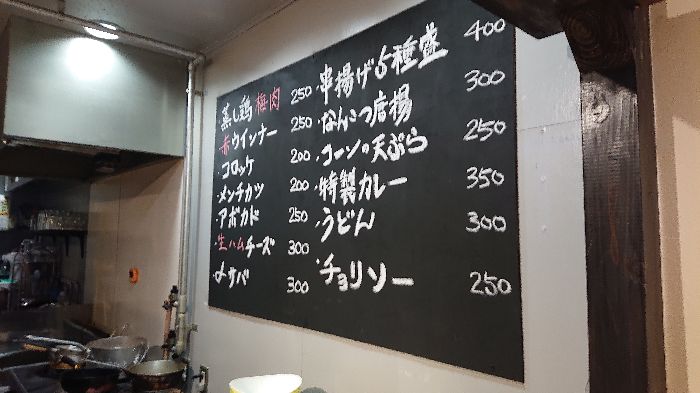 ・串揚げ5種盛 400
・なんこつ唐揚 300
・コーンの天ぷら 250
・特製カレー 350
・うどん 300
・チョリソー 250
蒸し鶏梅肉 250
赤ウインナー 250
・コロッケ 200
メンチカツ 200
アボカド 250
・生ハムチーズ 300
〆サバ 300